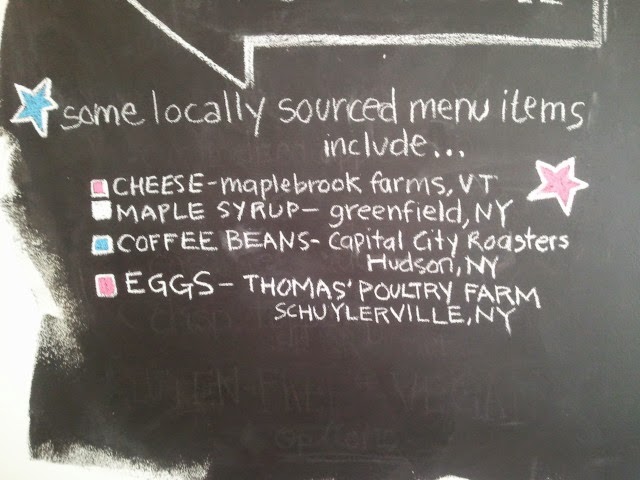 some locally sourced menu items
include...
CHEESE-maplebrook farms, VT
MAPLE SYRUP- greenfield, NY
COFFEE BEANS- Capital City Roasters
Hudson, NY
EGGS- THOMAS' POULTRY FARM
SCHUYLERVILLE, NY
GLUTEN-FREE & VEGAN
options